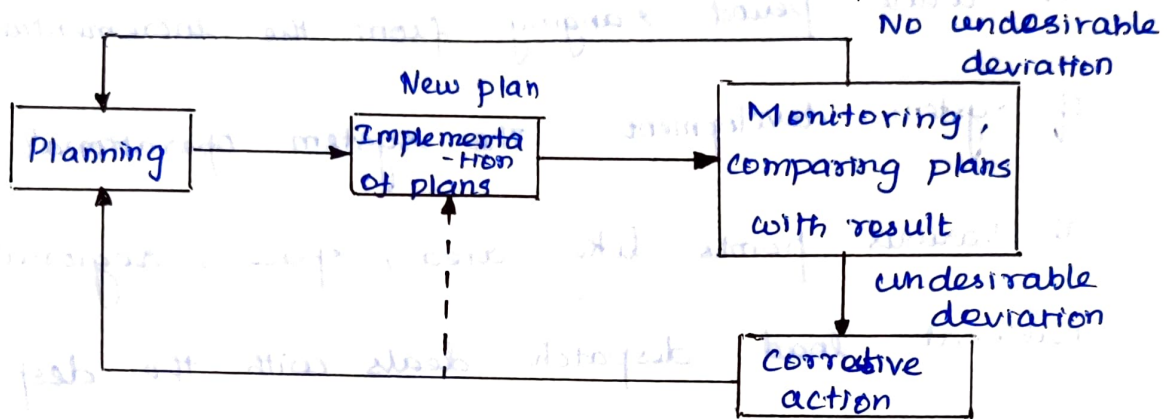 No undesirable
deviation
New plan
Planning
Implementa
-tion
Of plans
Monitoring,
comparing plans
with result
undesirable
deviation
corrective
action
dispatch deals with the